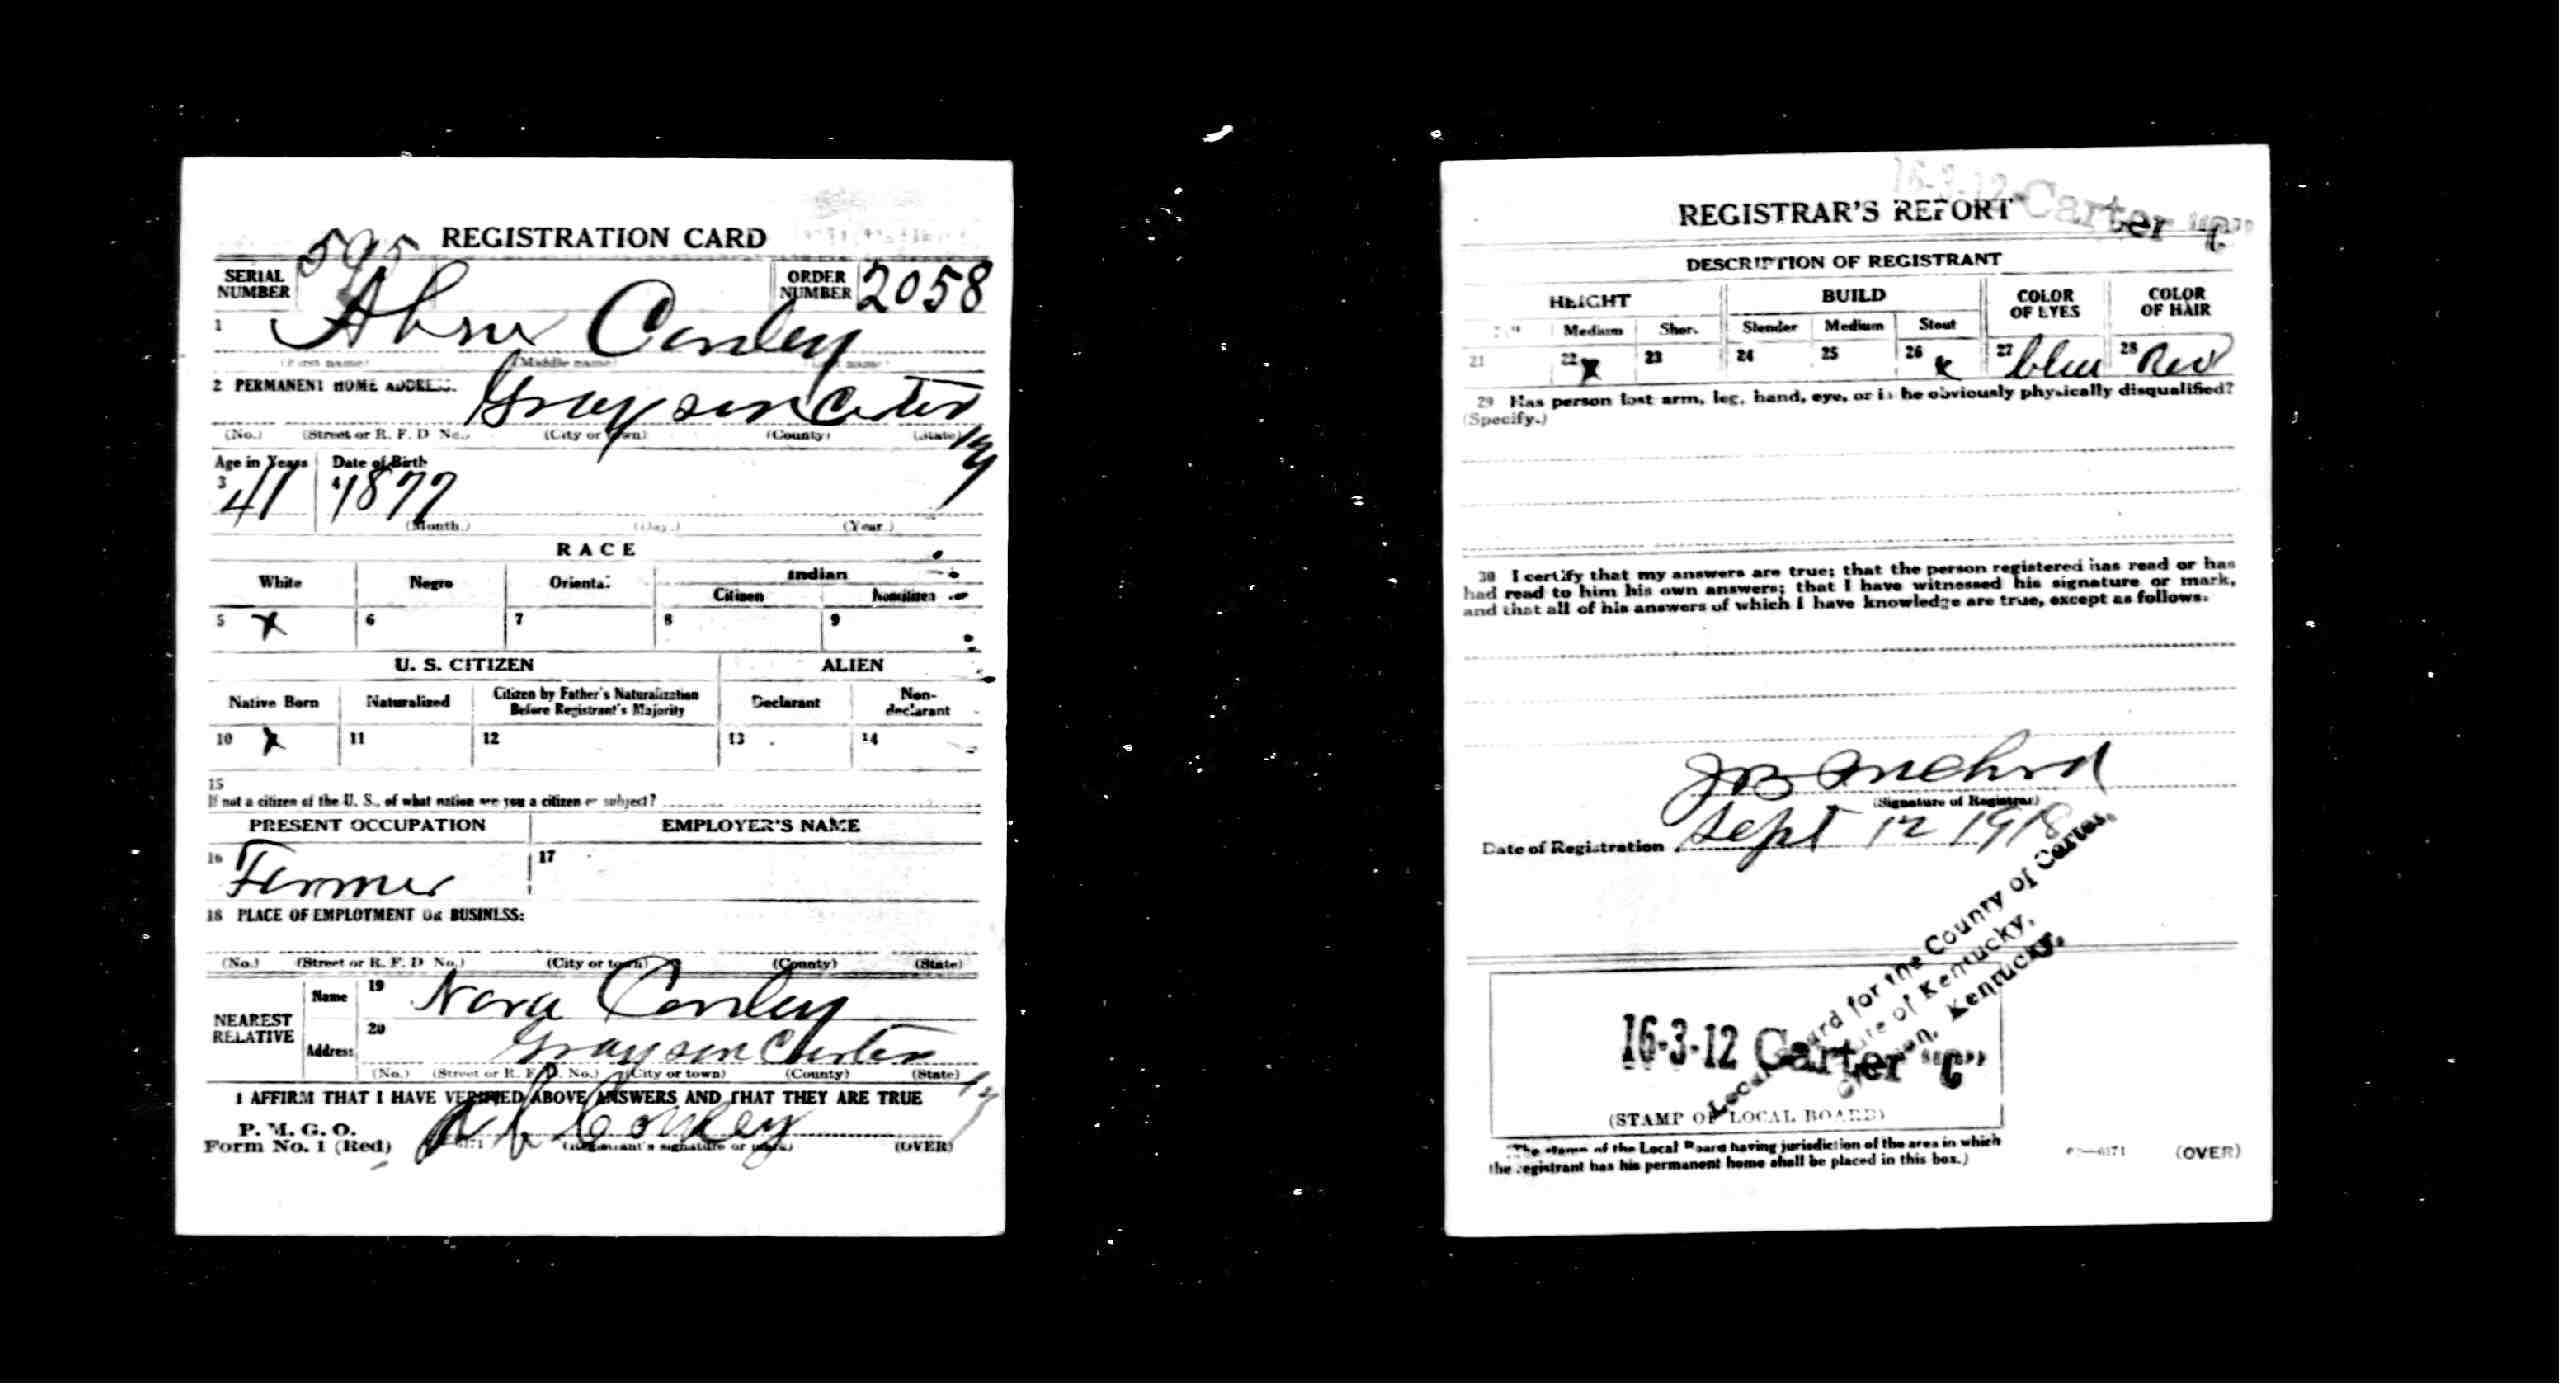 REGISTRATION CARD
SERIAL NUMBER 595
ORDER NUMBER 2058
1 Conley
(First name) (Middle name) (Last name)
2 PERMANENT HOME ADDRESS: Grayson Carter Ky
(No.) (Street or R. F. D. No.) (City or town) (County) (State)
Age in Years Date of Birth
3 41 4 1877
(Month.) (Day.) (Year.)
RACE
White Negro Oriental Indian
Citizen Noncitizen
5 x 6 7 8 9
U. S. CITIZEN ALIEN
Native Born Naturalized Citizen by Father's Naturalization Before Registrant's Majority Declarant Non-declarant
10 x 11 12 13 14
15
If not a citizen of the U. S., of what nation are you a citizen or subject?
PRESENT OCCUPATION EMPLOYER'S NAME
16 Farmer 17
18 PLACE OF EMPLOYMENT OR BUSINESS:
(No.) (Street or R. F. D. No.) (City or town) (County) (State)
NEAREST RELATIVE Name 19 Nora Conley
Address 20 Grayson Carter Ky
(No.) (Street or R. F. D. No.) (City or town) (County) (State)
I AFFIRM THAT I HAVE VERIFIED ABOVE ANSWERS AND THAT THEY ARE TRUE
P. M. G. O.
Form No. 1 (Red) Conley
(Registrant's signature or mark) (OVER)
16-3-12 Carter "C"
REGISTRAR'S REPORT
DESCRIPTION OF REGISTRANT
HEIGHT BUILD COLOR OF EYES COLOR OF HAIR
Medium Short Slender Medium Stout
21 22 x 23 24 25 26 x 27 blue 28 Red
29 Has person lost arm, leg, hand, eye, or is he obviously physically disqualified?
(Specify.)
30 I certify that my answers are true; that the person registered has read or has
had read to him his own answers; that I have witnessed his signature or mark,
and that all of his answers of which I have knowledge are true, except as follows:
(Signature of Registrar)
Date of Registration Sept 12 1918
Local Board for the County of Carter,
State of Kentucky,
Kentucky.
16-3-12 Carter "C"
(STAMP OF LOCAL BOARD)
(The stamp of the Local Board having jurisdiction of the area in which
the registrant has his permanent home shall be placed in this box.)
(OVER)